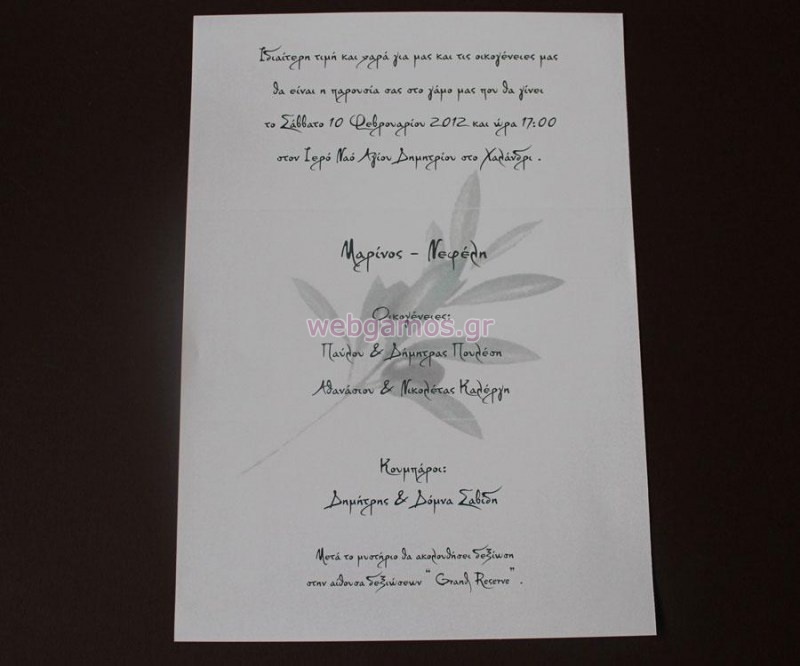 Ιδιαίτερη τιμή και χαρά για μας και τις οικογένειες μας
θα είναι η παρουσία σας στο γάμο μας που θα γίνει
το Σάββατο 10 Φεβρουαρίου 2012 και ώρα 17:00
στον Ιερό Ναό Αγίου Δημητρίου στο Χαλάνδρι .
Μαρίνος - Νεφέλη
Οικογένειες:
webgamos.gr
Παύλου & Δήμητρας Πουλέση
Αθανάσιου & Νικολέτας Καλέργη
Κουμπάροι:
Δημήτρης & Δόμνα Σαβίδη
Μετά το μυστήριο θα ακολουθήσει δεξίωση
στην αίθουσα δεξιώσεων " Grand Reserve" .